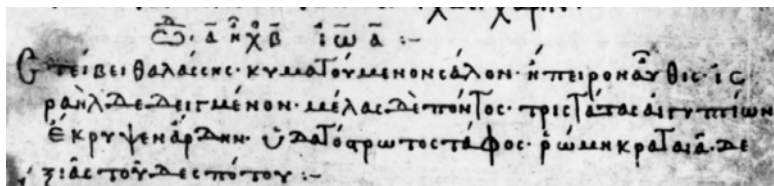 ᾠδ. α ἦχ β ἰω α :-
Στείβει θαλάσσης· κυματούμενον σάλον· ἤπειρον αὖθις· ἰσ
ραὴλ δεδειγμένον· μέλας δὲ πόντος· τριστάτας αἰγυπτίων
ἔκρυψεν ἄρδην· ὑδατόστρωτος τάφος· ῥώμη κραταιᾶ· δε
ξιᾶς τοῦ δεσπότου :-